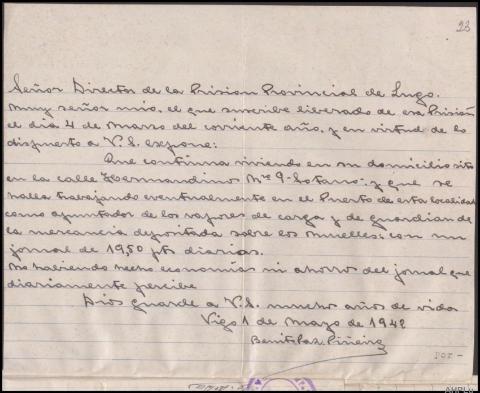 23
Señor Director de la Prision Provincial de Lugo.
Muy señor mio, el que suscribe liberado de esa Prisión
el dia 4 de Marzo del corriente año, y en virtud de lo
dispuesto a V.S. expone:
Que continua viviendo en su domicilio sito
en la calle Hermandino Nº 9-Sotano y que se
halla trabajando eventualmente en el Puerto de esta localidad
como apuntador de los vapores de carga y de guardian de
la mercancia depositada sobre los muelles; con un
jornal de 19,50 pts diarias.
No habiendo hecho economias ni ahorros del jornal que
diariamente percibe
Dios guarde a V.S. muchos años de vida
Vigo 1 de Mayo de 1942
Benito Paz Piñeiro